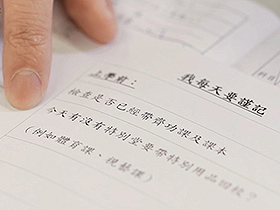 我每天要謹記
上學前：
檢查是否已經帶齊功課及課本
今天有沒有特別堂要帶特別用品回校？
(例如體育課、視藝課)